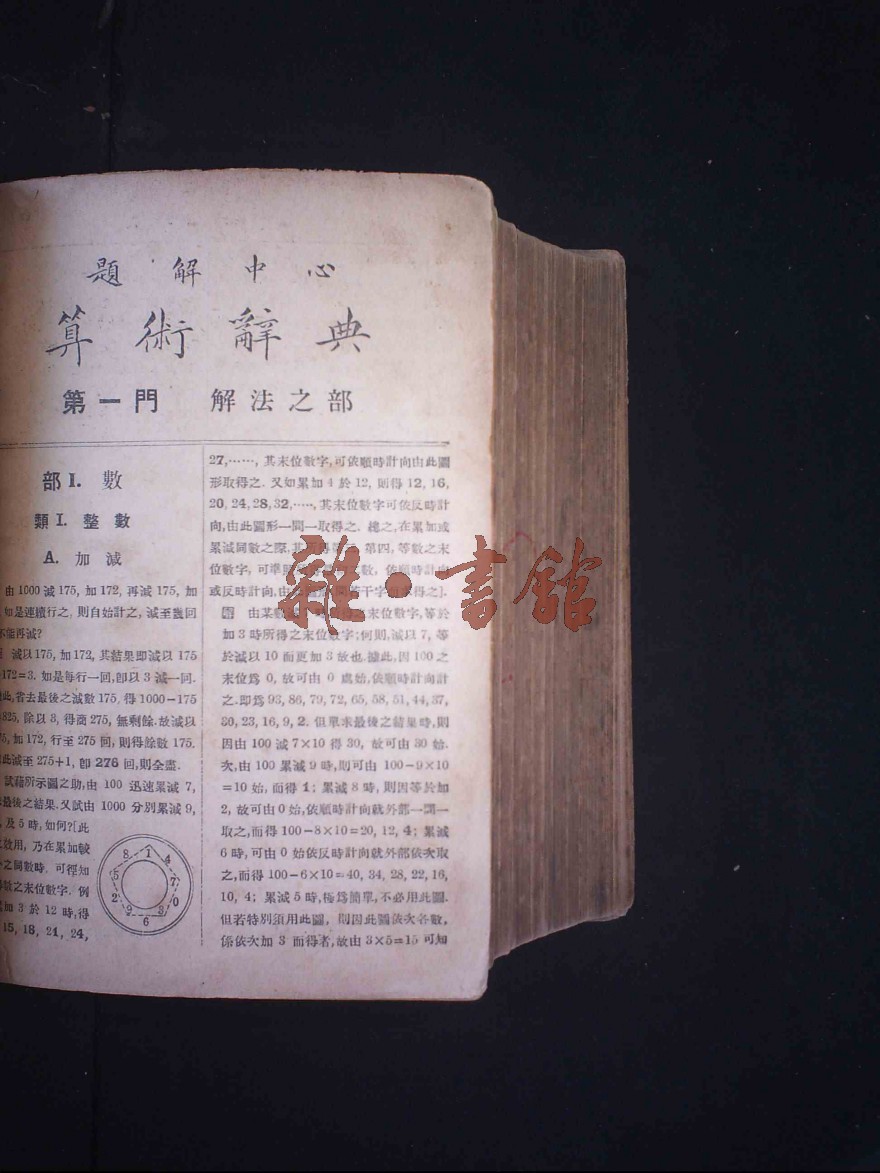 題解中心
算術辭典
第一門 解法之部
部I. 數
類I. 整數
A. 加減
由 1000 減 175, 加 172, 再減 175, 加
如是連續行之, 則自始計之, 減至幾回
不能再減?
減以 175, 加 172, 其結果卽減以 175
172=3. 如是每行一回, 卽以 3 減一回.
此, 省去最後之減數 175, 得 1000-175
825, 除以 3, 得商 275, 無剩餘. 故減以
75, 加 172, 行至 275 回, 則得餘數 175.
此減至 275+1, 卽 276 回, 則全盡.
試藉所示圖之助, 由 100 迅速累減 7,
最後之結果. 又試由 1000 分別累減 9,
及 5 時, 如何?[此
效用, 乃在累加
之同數時, 可得知
數之末位數字. 例
加 3 於 12 時, 得
15, 18, 21, 24,
8 1 4 7 0 3 6 9 2 5
27,……, 其末位數字, 可依順時計向由此圖
形取得之. 又如累加 4 於 12, 則得 12, 16,
20, 24, 28, 32,……, 其末位數字可依反時計
向, 由此圖形一間一取得之. 總之, 在累加或
累減同數之際, 第四, 等數之末
位數字, 可準 數, 依順時計向
或反時計向, 由 若干字 得之].
由某數 末位數字, 等於
加 3 時所得之末位數字; 何則, 減以 7, 等
於減以 10 而更加 3 故也. 據此, 因 100 之
末位爲 0, 故可由 0 處始, 依順時計向計
之. 卽爲 93, 86, 79, 72, 65, 58, 51, 44, 37,
30, 23, 16, 9, 2. 但單求最後之結果時, 則
因由 100 減 7×10 得 30, 故可由 30 始.
次, 由 100 累減 9 時, 則可由 100-9×10
=10 始, 而得 1; 累減 8 時, 則因等於加
2, 故可由 0 始, 依順時計向就外部一間一
取之, 而得 100-8×10=20, 12, 4; 累減
6 時, 可由 0 始依反時計向就外部依次取
之, 而得 100-6×10=40, 34, 28, 22, 16,
10, 4; 累減 5 時, 極爲簡單, 不必用此圖.
但若特別須用此圖, 則因此圖依次各數,
係依次加 3 而得者, 故由 3×5=15 可知
雜·書館